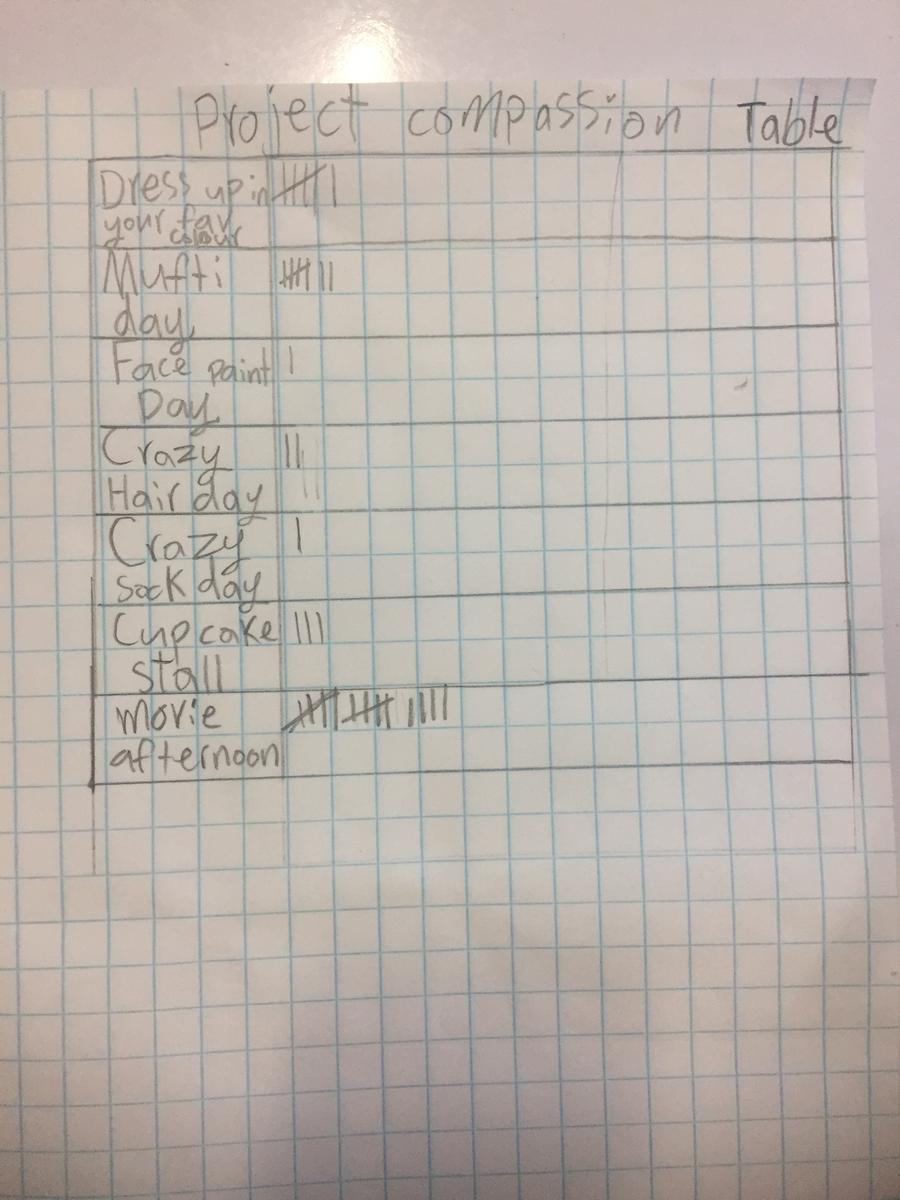 Project compassion Table
Dress up in
your fav
colour
Mufti
day
Face paint
Day
Crazy
Hair day
Crazy
sock day
Cupcake
stall
movie
afternoon